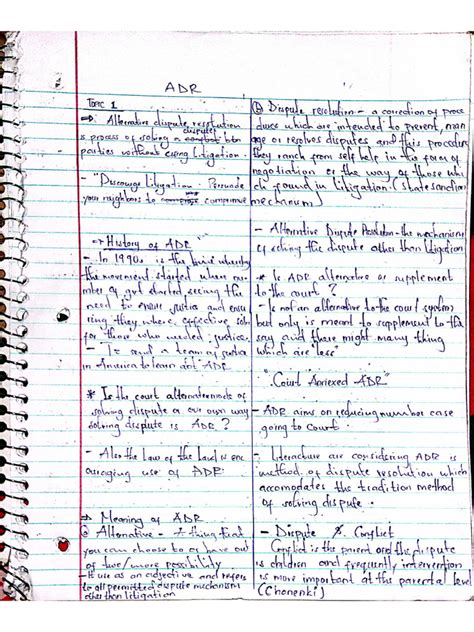 ADR
Topic 1
⇒ Alternative dispute resolution
is process of solving a dispute btn
parties without using litigation.
- "Discourage litigation. Persuade
your neighbors to compromise
⇒ History of ADR
- In 1990s is the time whereby
the movement started where
number of gvt started seeing the
need to ensure justice and
ensuring they where effective
for those who needed justice.
- I send a team of justice
in America to learn abt ADR
* Is the court alternate mode of
solving dispute or our own way
solving dispute is ADR?
- Also the law of the land is
encouraging use of ADR
⇒ Meaning of ADR
@ Alternative - A thing that
you can choose to or have out
of two/more possibility
It use as an adjective and refers
to all permitted dispute mechanism
other than litigation
(b) Dispute resolution - a collection of
procedures which are intended to prevent,
manage or resolves disputes and this procedure
they ranch from self help in the form of
negotiation or the way of those
which found in litigation (state sanction
mechanism)
- Alternative Dispute Resolution - the mechanisms
of solving the dispute other than litigation
* Is ADR alternative or supplement
to the court?
- Is not an alternative to the court system
but only is meant to supplement to the
say and there might many thing
which are "less"
"Court Annexed ADR"
- ADR aims on reducing number case
going to court.
- Literature are considering ADR is
method of dispute resolution which
accomodates the tradition method
of solving dispute.
- Dispute & Conflict
Conflict is the parent and the dispute
is children and frequently intervention
is more important at the parental level
(Chonenki)